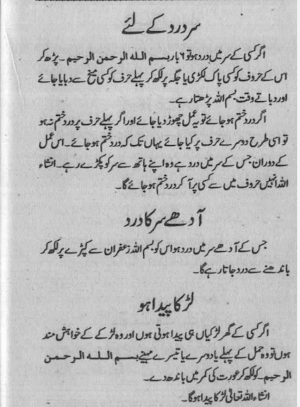 سر درد کے لئے
اگر کسی کے سر میں درد ہو تو ۶ بار بسم اللہ الرحمن الرحیم ۔ پڑھ کر
اس کے حروف کو کسی پاک لکڑی یا جگہ پر لکھ کر پہلے حرف کو کسی میخ سے دبایا جائے
اور دباتے وقت بسم اللہ پڑھتا رہے۔
اگر درد ختم ہو جائے تو یہ عمل چھوڑ دیا جائے اور اگر پہلے حرف پر درد ختم نہ ہو
تو اسی طرح دوسرے حرف پر کیا جائے یہاں تک کہ درد ختم ہو جائے۔ اس عمل
کے دوران جس کے سر میں درد ہے وہ اپنے ہاتھ سے سر کو پکڑے رہے۔ انشاء
اللہ انہیں حروف میں سے کسی پر آ کر درد ختم ہو جائے گا۔
آدھے سر کا درد
جس کے آدھے سر میں درد ہو اس کو بسم اللہ زعفران سے کپڑے پر لکھ کر
باندھنے سے درد جاتا رہے گا۔
لڑکا پیدا ہو
اگر کسی کے گھر لڑکیاں ہی پیدا ہوتی ہوں اور وہ لڑکے کے خواہش مند
ہوں تو وہ حمل کے پہلے یا دوسرے یا تیسرے مہینے بسم اللہ الرحمن
الرحیم ۔ کو لکھ کر عورت کی کمر میں باندھ دے۔
انشاء اللہ تعالیٰ لڑکا پیدا ہو گا۔